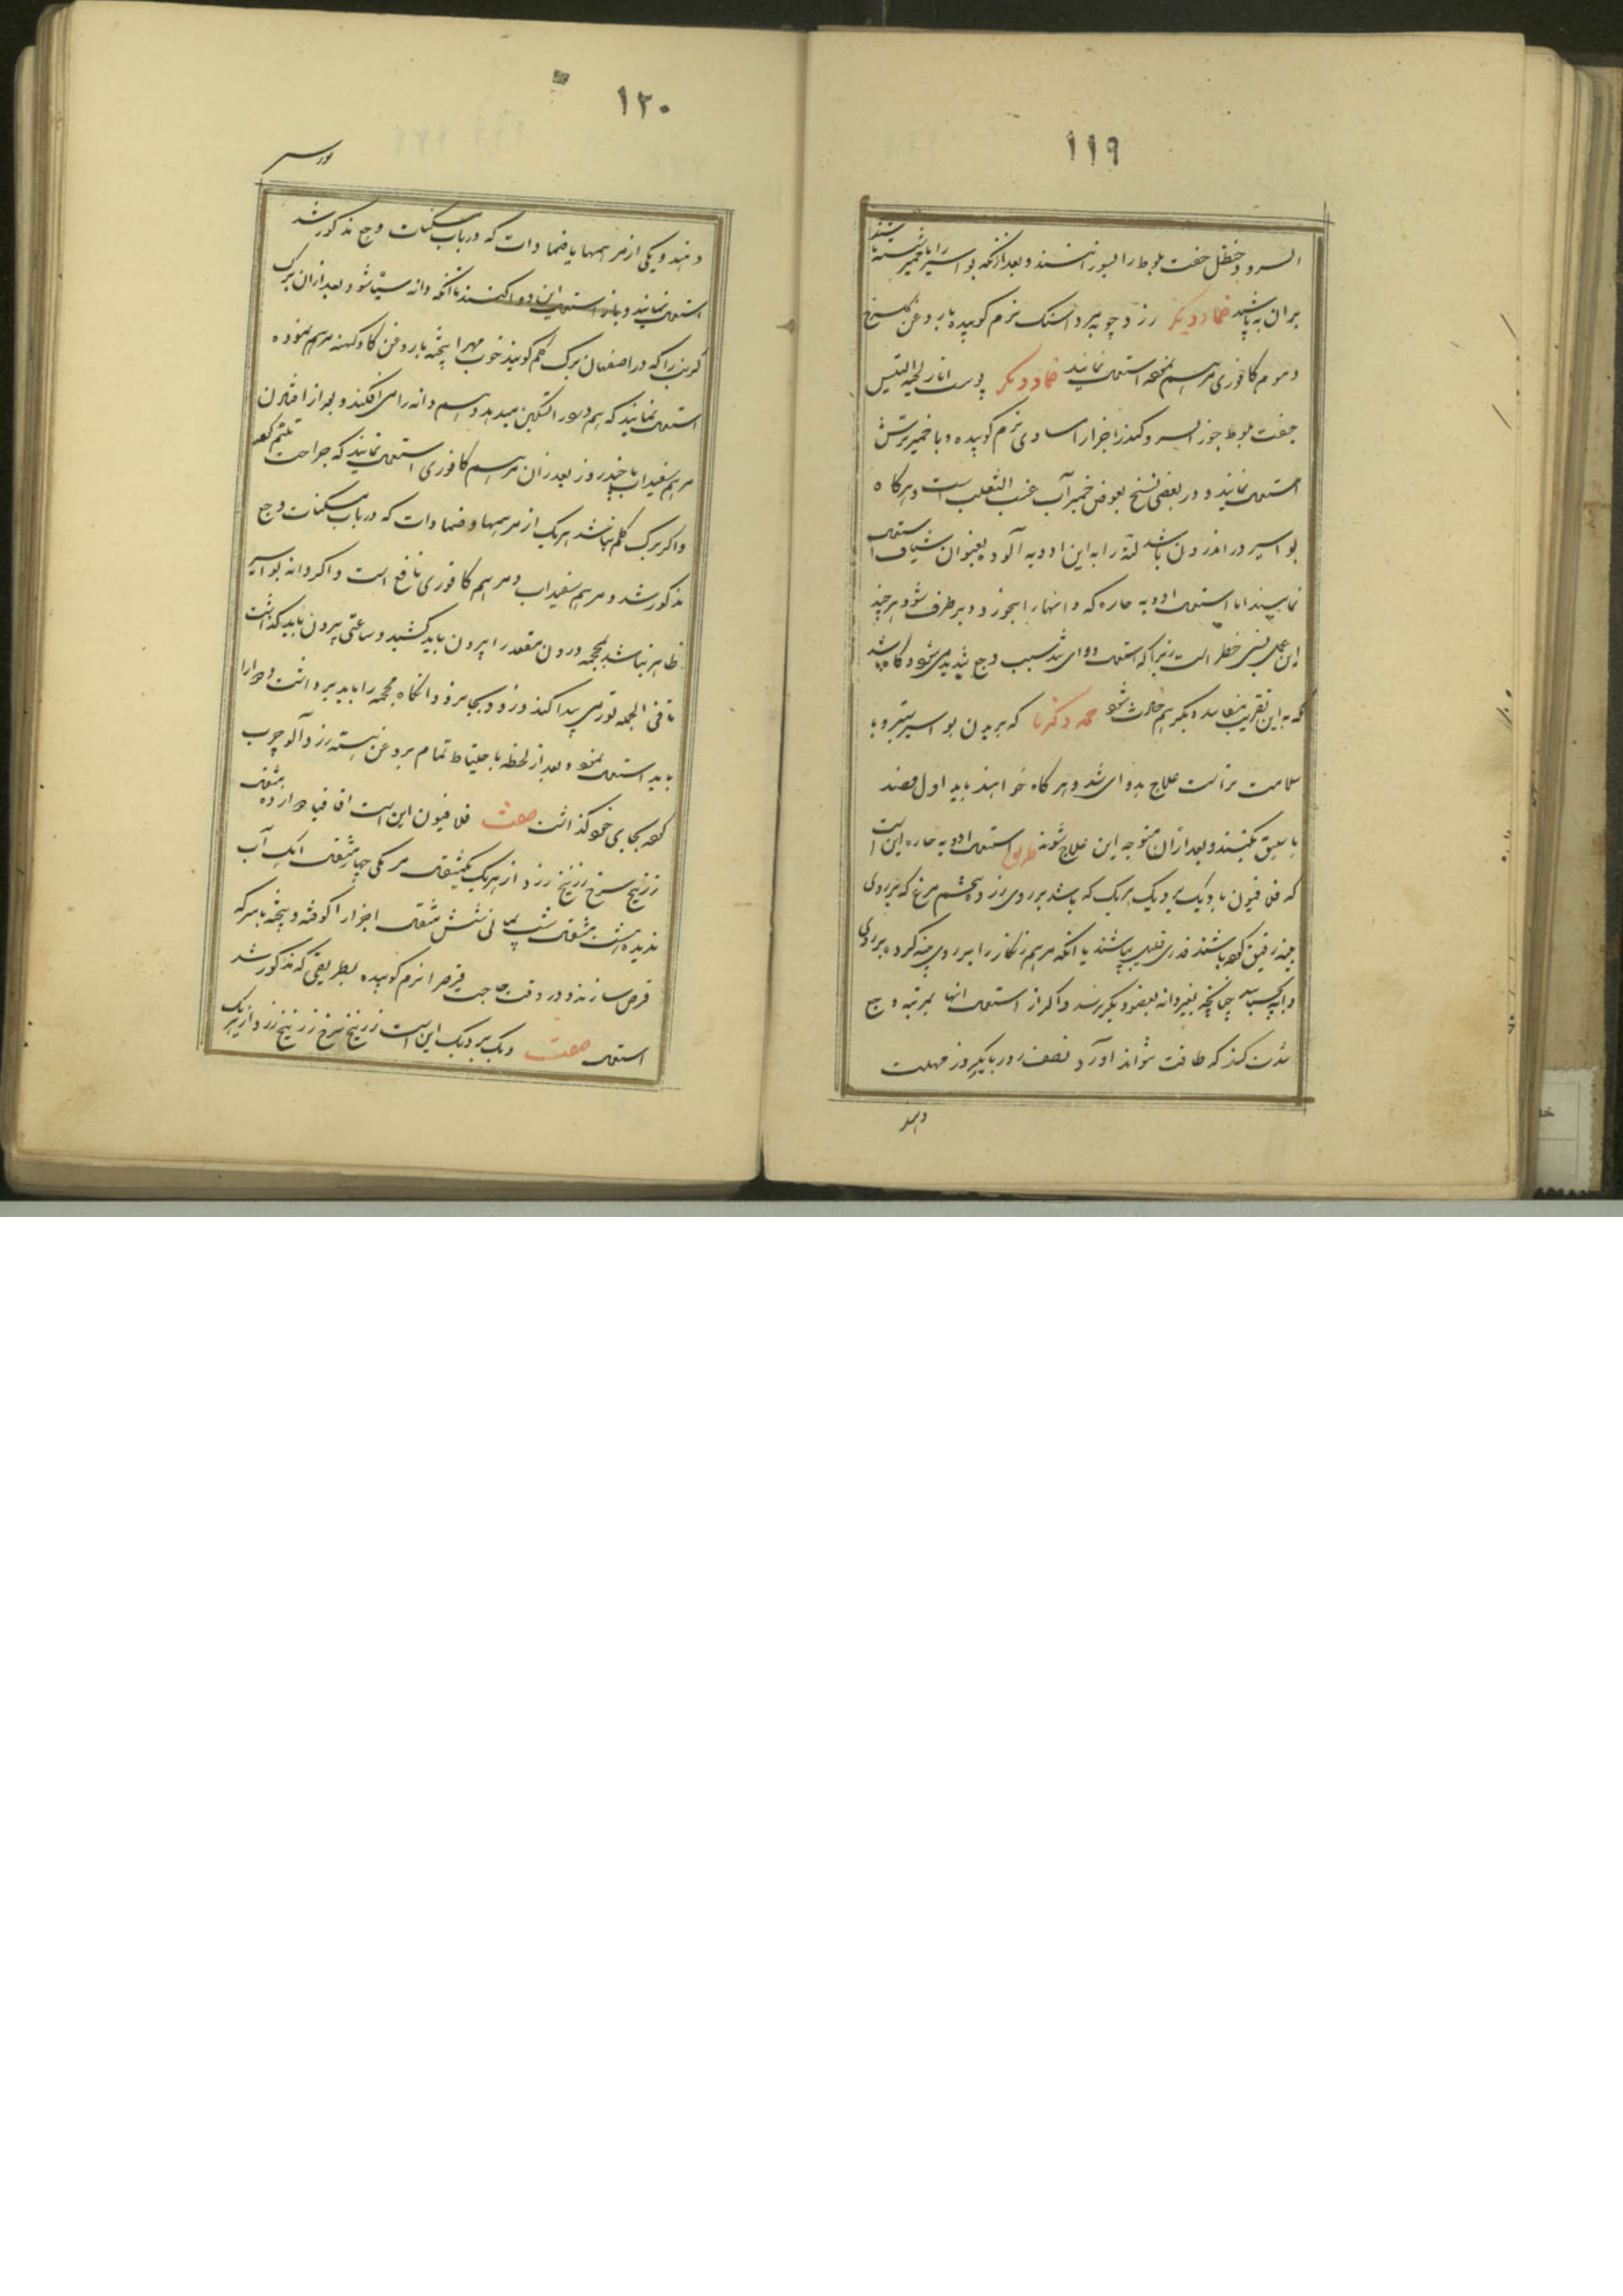 ١١٩
السرو و حنظل جفت بلوط را بسوزانند و بعد از آنکه بواسیر را با خمیر شسته باشند
بران بپاشند ضماد دیکر زرد چوبه مرداسنک نرم کوبیده با روغن کل سرخ
و موم کافوری مرهم نموده استعمال نمایند ضماد دیکر پوست انار لحیة التیس
جفت بلوط جوز السرو کندر اجزا را مساوی نرم کوبیده و با خمیر ترش
استعمال نمایند و در بعضی نسخ بعوض خمیر آب عنب الثعلب است و هرکاه
بواسیر در اندرون باشد لته را به این ادویه آلوده بعنوان شیاف استعمال
نمایند اما استعمال ادویه حاره که دانها را بخورد و برطرف شود هرچند
این عمل بسی خطر است زیرا که استعمال دوای تند سبب وجع شدید می شود و کاه باشد
که به این تقریب مفاسد دیکر هم حادث شود که بریدن بواسیر
سلامت تر است علاج بدوای تند و هرکاه خواهند باید اول فصد
باسلیق بکنند و بعد از ان متوجه این علاج شوند طریق استعمال ادویه حاره این است
که فلافیون یا دیک بردیک هریک که باشد بر روی زرده تخم مرغ که بر روی
پنبه رقیق کرده باشند قدری قلیل بپاشند یا آنکه مرهم زنکار را بر روی پنبه کرده بر روی
دانه بچسباند چنانچه بغیر دانه بعضو دیکر نرسد و اکر از استعمال انها بمرتبه وجع
شدت کند که طاقت نتواند آورد نصف روز یا یکروز مهلت
دهند
١٢٠
بواسیر
دهند و یکی از مرهمها یا ضمادات که در باب مسکنات وجع مذکور شد
استعمال نمایند و باز استعمال این دوا کنند تا آنکه دانه سیاه شود بعد از ان برک
کرنب را که در اصفهان برک کلم کویند خوب مهرا پخته با روغن کاو کهنه مرهم نموده
استعمال نمایند که هم درد را تسکین میدهد و هم دانه را می افکند و بعد از افتادن
مرهم سفیداب تا چند روز بعد از ان مرهم کافوری استعمال نمایند که جراحت ملتئم کردد
و اکر برک کلم نباشد هر یک از مرهمها و ضمادات که در باب مسکنات وجع
مذکور شد و مرهم سفیداب و مرهم کافوری نافع است و اکر دانه بواسیر
ظاهر نباشد بمحجمه درون مقعد را بیرون باید کشید و ساعتی بیرون باید کذاشت
تا فی الجمله تورمی پیدا کند و زود بجا نرود و انکاه محجمه را باید برداشت و دوا را
باید استعمال نمود و بعد از لحظه باحتیاط تمام بروغن هسته زردآلو چرب
کرده بجای خود کذاشت صفت فلافیون این است اقاقیا دوازده مثقال
زرنیخ سرخ زرنیخ زرد از هریک یکمثقال مر مکی چهار مثقال آهک آب
ندیده هشت مثقال شب یمانی شش مثقال اجزا را کوفته و بیخته با سرکه
قرص سازند و در وقت حاجت قرص را نرم کوبیده بطریقی که مذکور شد
استعمال صفت دیک بردیک این است زرنیخ سرخ زرنیخ زرد از هریک